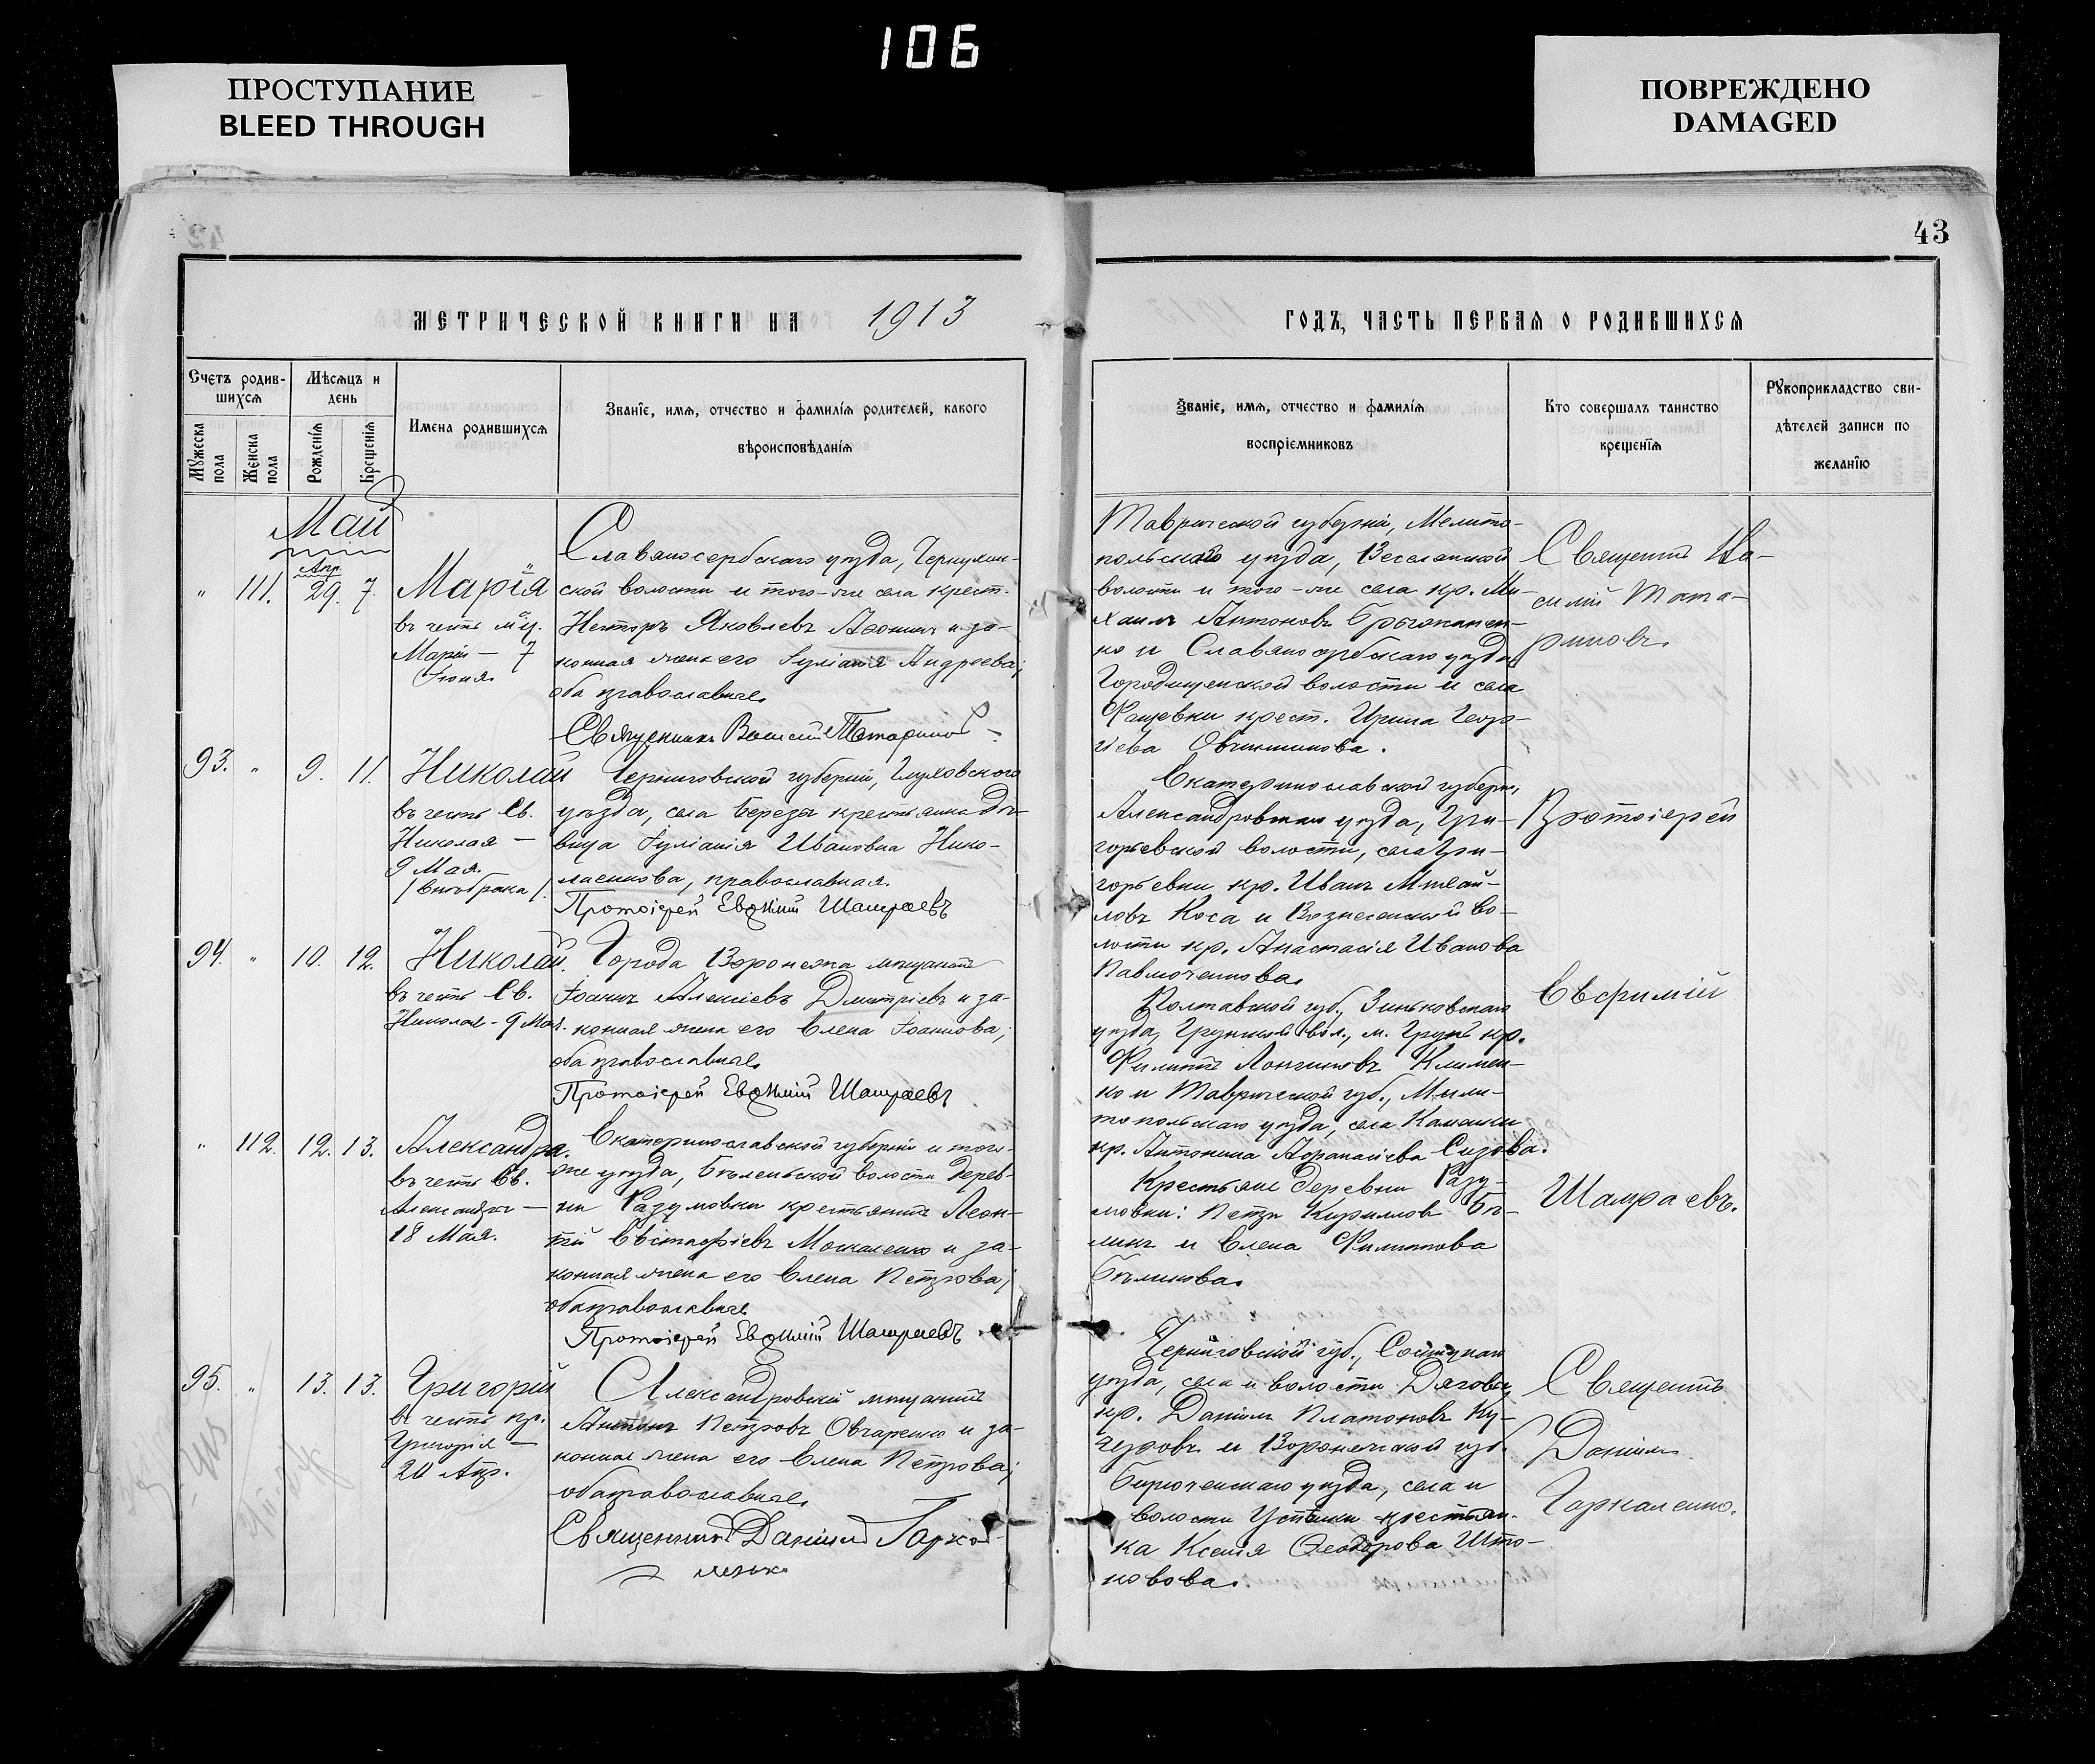 106
ПРОСТУПАНИЕ
BLEED THROUGH
ПОВРЕЖДЕНО
DAMAGED
43
МЕТРИЧЕСКОЙ КНИГИ НА 1913
ГОДЪ, ЧАСТЬ ПЕРВАЯ О РОДИВШИХСЯ
Счетъ родив-
шихся
Мѣсяцъ и
день
Мужеска
пола
Женска
пола
Рожденія
Крещенія
Имена родившихся
Званіе, имя, отчество и фамилія родителей, какого
вѣроисповѣданія
Званіе, имя, отчество и фамилія
воспріемниковъ
Кто совершалъ таинство
крещенія
Рукоприкладство сви-
дѣтелей записи по
желанію
Май
Апр.
" 111. 29. 7.
Марія
въ честь мц.
Маріи — 7
Іюня.
Славяносербскаго уѣзда, Чернухин-
ской волости и того-же села крест.
Несторъ Яковлевъ и за-
конная жена его Іуліанія Андреева;
оба православные.
Священникъ Василій Татариновъ
Таврической губерніи, Мелито-
польскаго уѣзда, Веселовской
волости и того-же села кр. Ми-
хаилъ Антоновъ
и Славяносербскаго уѣзда
Городищенской волости и села
Фащевки крест. Ирина Геор-
гіева Овчинникова.
Священникъ Ва-
силій Тата-
риновъ.
93. " 9. 11.
Николай
въ честь Св.
Николая —
9 Мая.
/внѣбрака/.
Черниговской губерніи, Глуховского
уѣзда, села Березы крестьянка дѣ-
вица Іуліанія Ивановна Нико-
лаенкова, православная.
Протоіерей Евѳимій Шамраевъ
Екатеринославской губерніи,
Александровскаго уѣзда, Гри-
горьевской волости, села Гри-
горьевки кр. Иванъ Михай-
ловъ Коса и Вознесенской во-
лости кр. Анастасія Иванова
Павлюченкова.
Протоіерей
94. " 10. 12.
Николай.
въ честь Св.
Николая - 9 Мая.
Города Воронежа мѣщанинъ
Іоаннъ Алексіевъ Дмитріевъ и за-
конная жена его Елена Іоаннова;
оба православные.
Протоіерей Евѳимій Шамраевъ
Полтавской губ., Зиньковскаго
уѣзда, Грунской вол., м. Грунь кр.
Филиппъ Лонгиновъ Климен-
ко и Таврической губ., Мели-
топольскаго уѣзда, села Каменки
кр. Антонина Аѳанасіева Сизова.
Евфимій
" 112. 12. 13.
Александра.
въ честь Св.
Александры —
18 Мая.
Екатеринославской губерніи и того-
же уѣзда, Бѣленьской волости дерев-
ни Разумовки крестьянинъ Леон-
тій Евстафіевъ Москаленко и за-
конная жена его Елена Петрова;
оба православные.
Протоіерей Евѳимій Шамраевъ.
Крестьяне деревни Разу-
мовки: Петръ Кирилловъ Бѣ-
ликъ и Елена Филиппова
Бѣликова.
Шамраевъ.
95. " 13. 13.
Григорій
въ честь пр.
Григорія —
20 Апр.
Александровскій мѣщанинъ
Антонъ Петровъ Овчаренко и за-
конная жена его Елена Петрова;
оба православные.
Священникъ Даніилъ Горка-
ленко
Черниговской губ., Сосницкаго
уѣзда, села и волости Дягова,
кр. Даніилъ Платоновъ Ку-
черовъ и Воронежской губ.
Бирюченскаго уѣзда, села и
волости крестьян-
ка Ксенія Ѳеодорова Што-
нова.
Священникъ
Даніилъ
Горкаленко.